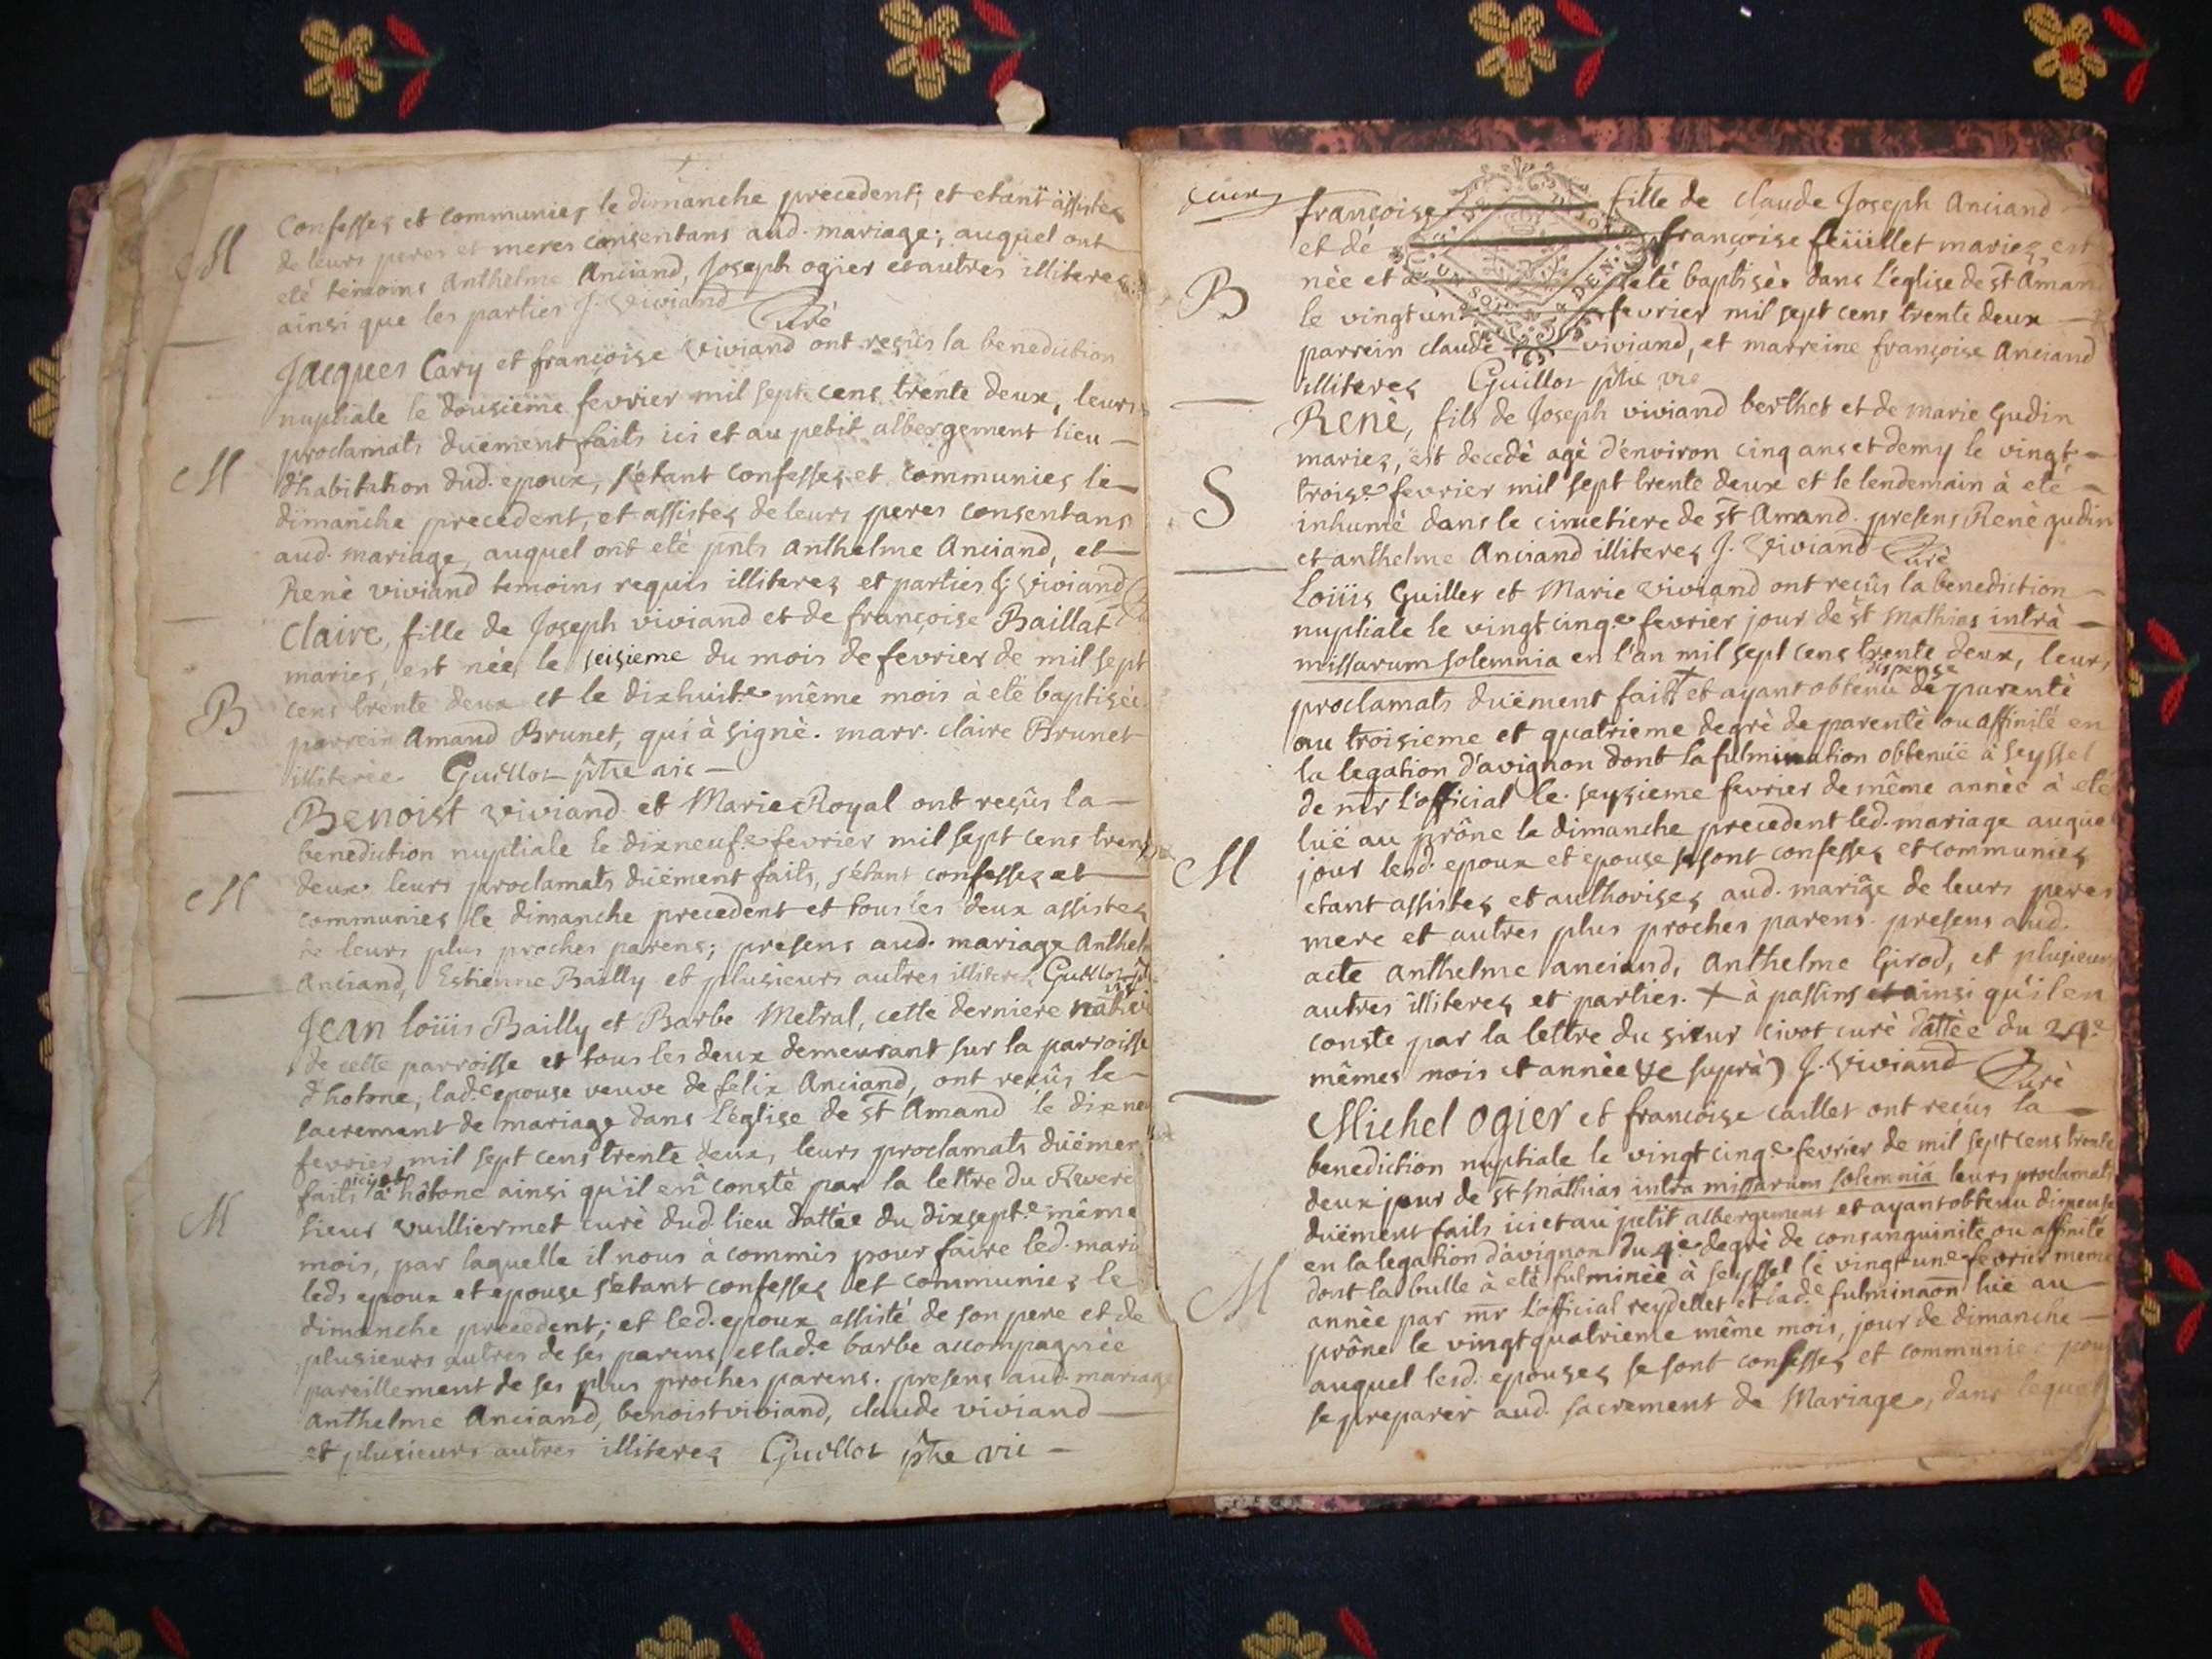 Confessez et communiez le dimanche precedent; et etant assistez
de leurs peres et meres consentans aud. mariage; auquel ont
eté temoins Anthelme Anciand, Joseph ogier et autres illiterez
ainsi que les parties J. Viviand Curé
M
Jacques Cary et françoise Viviand ont reçûs la benediction
nuptiale le dousième fevrier mil sept cens trente deux, leurs
proclamats düement faits ici et au petit albergement lieu
d'habitation dud. epoux, s'étant confessez et communiez le
dimanche precedent, et assistez de leurs peres consentans
aud. mariage, auquel ont eté pnts Anthelme Anciand, et
Renè viviand temoins requis illiterez et parties J. Viviand
M
Claire, fille de Joseph viviand et de françoise Baillat
mariés, est née le seisieme du mois de fevrier de mil sept
cens trente deux et le dixhuit.e même mois à eté baptisée
parrein Amand Brunet, qui à signè. marr. claire Brunet
illiterèe Guillot ptre vic
B
Benoist viviand et Marie Royal ont reçûs la
benediction nuptiale le dixneuf.e fevrier mil sept cens trente
deux leurs proclamats düement faits, s'étant confessez et
communiez le dimanche precedent et tous les deux assistez
de leurs plus proches parens; presens aud. mariage Anthelme
Anciand, Estienne Bailly et plusieurs autres illiterez Guillot ptre vic
M
Jean loüis Bailly et Barbe Metral, cette derniere native
de cette parroisse et tous les deux demeurant sur la parroisse
d'hotone, lad.e epouse veuve de felix Anciand, ont reçûs le
sacrement de mariage dans l'église de st Amand le dixneuf
fevrier mil sept cens trente deux, leurs proclamats düement
faits ici et à hôtone ainsi qu'il en à consté par la lettre du Revere
sieur vuilliermet curè dud. lieu dattée du dixsept.e même
mois, par laquelle il nous à commis pour faire led. maria
leds epoux et epouse s'étant confessez et communiez le
dimanche precedent; et led. epoux assisté de son pere et de
plusieurs autres de ses parens, et lad.e barbe accompagnée
pareillement de ses plus proches parens. presens aud. mariage
Anthelme Anciand, benoist viviand, claude viviand
et plusieurs autres illiterez Guillot ptre vic
M
françoise fille de claude Joseph Anciand
et de françoise feüillet mariez, est
née et a eté baptisée dans l'église de st Amand
le vingt un fevrier mil sept cens trente deux
parrein claude viviand, et marreine françoise Anciand
illiterez Guillot ptre vic
B
Renè, fils de Joseph viviand berthet et de marie gudin
mariez, est decedé agé d'environ cinq ans et demy le vingt
trois.e fevrier mil sept trente deux et le lendemain à eté
inhumé dans le cimetiere de st Amand. presens Renè gudin
et anthelme Anciand illiterez J. Viviand Curé
S
Loüis Guillet et Marie viviand ont reçûs la benediction
nuptiale le vingt cinq.e fevrier jour de st Mathias intrà
missarum solemnia en l'an mil sept cens trente deux, leurs
proclamats düement faits + et ayant obtenu dispense de parenté
au troisieme et quatrieme degrè de parentè ou affinité en
la legation d'avignon dont la fulmination obtenüe à Seyssel
de mr l'official le seysieme fevrier de même année à eté
lüe au prône le dimanche precedent led. mariage auquel
jour lesd. epoux et epouse se sont confessez et communiez
etant assistez et authorisez aud. mariage de leurs peres
mere et autres plus proches parens. presens aud.
acte anthelme anciand, Anthelme Girod, et plusieurs
autres illiterez et parties. + à passins et ainsi qu'il en
conste par la lettre du sieur civot curè dattèe du 24.e
mêmes mois et année (Ve suprà) J. Viviand Curé
M
Michel Ogier et françoise caillet ont reçûs la
benediction nuptiale le vingt cinq.e fevrier de mil sept cens trente
deux jour de st Mathias intra missarum solemnia leurs proclamats
düement faits ici et au petit albergement et ayant obtenu dispense
en la legation d'avignon du 4.e degrè de consanguinité ou affinité
dont la bulle à eté fulminèe à seyssel le vingt un.e fevrier meme
année par mr l'official reydellet et lad.e fulminaon lüe au
prône le vingt quatrieme même mois, jour de dimanche
auquel lesd. epousez se sont confessez et communiez pour
se preparer aud. sacrement de Mariage, dans lequel
M